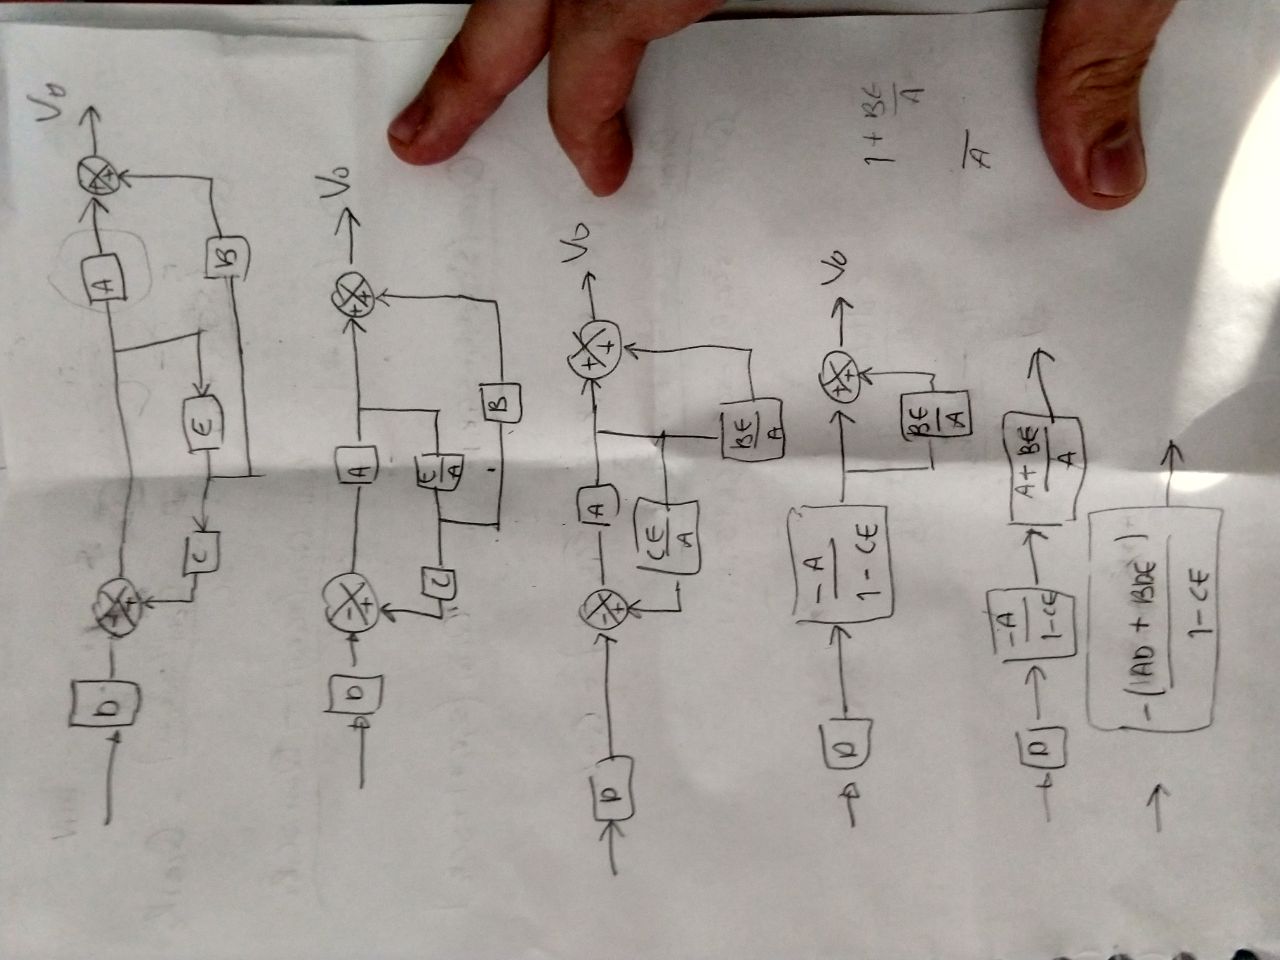 V₀
D + + A + +
C E B
D - + A + + V₀
C E/A B
D - + A + + V₀
CE/A
BE/A
D -A/(1-CE) + + V₀
BE/A
1 + BE/A
A
D -A/(1-CE) A+BE/A
-(AD + BDE)/(1-CE)